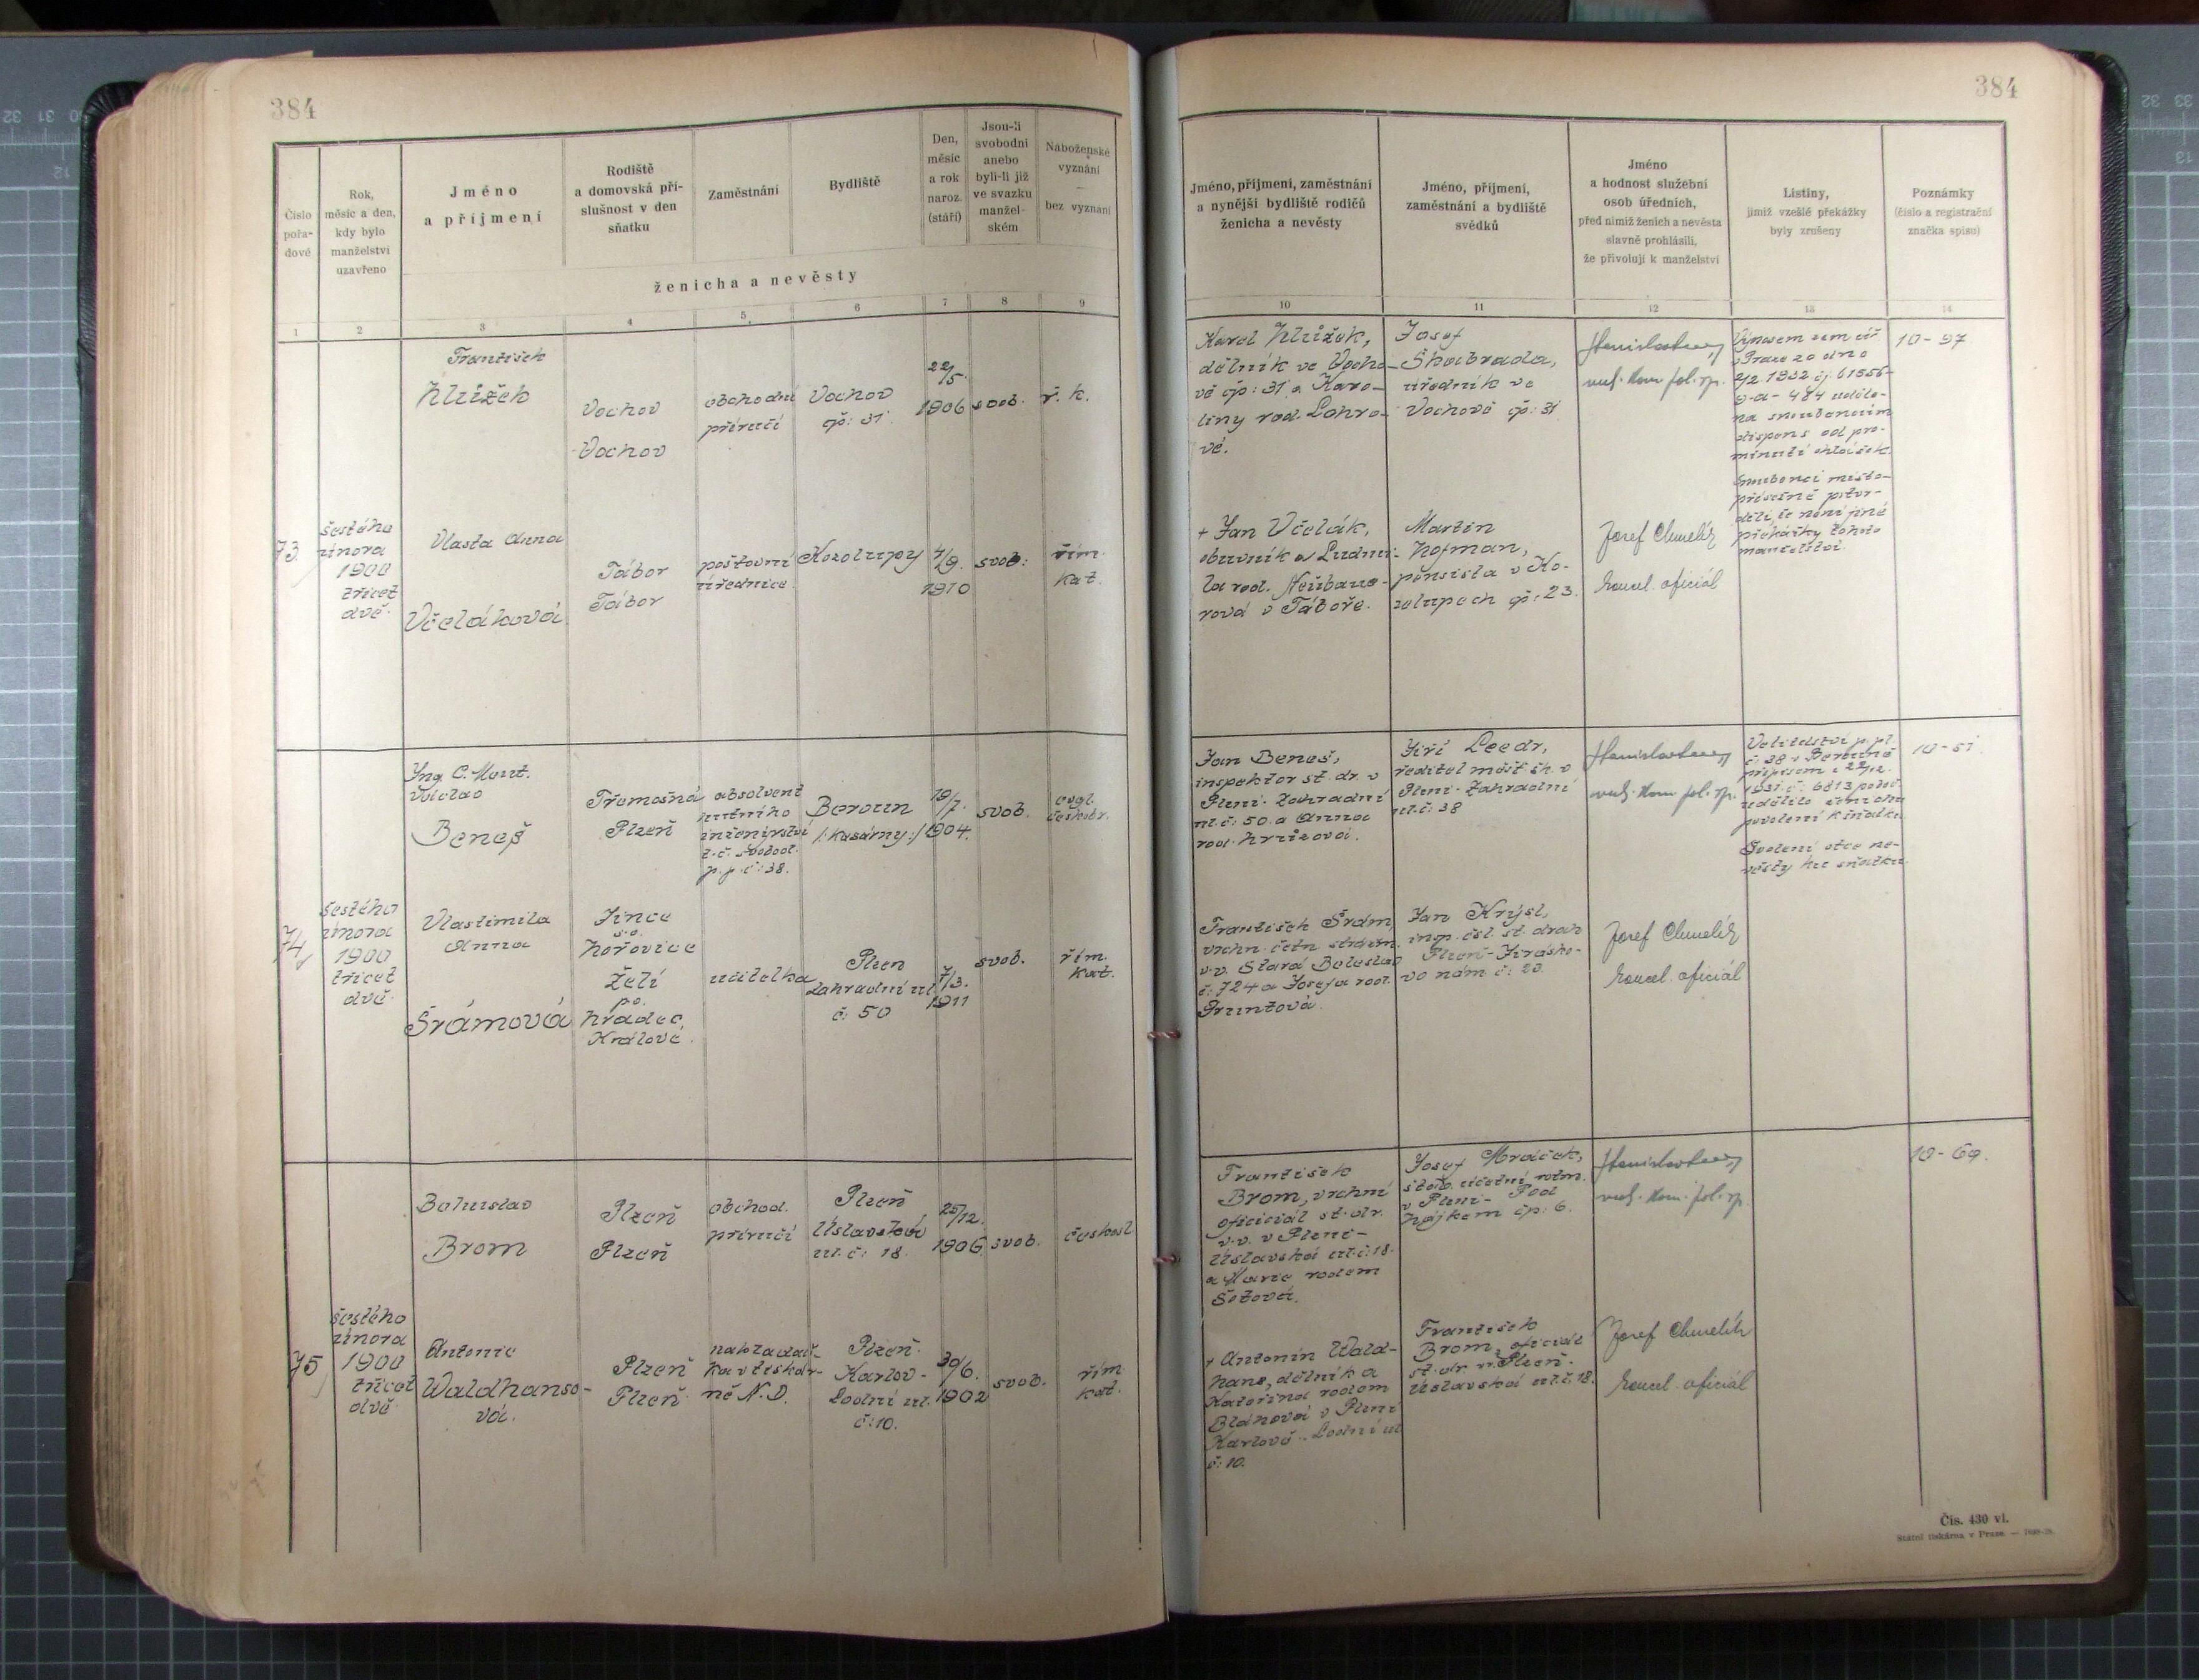 384
384
Číslo pořadové
Rok, měsíc a den, kdy bylo manželství uzavřeno
Jméno a příjmení
Rodiště a domovská příslušnost v den sňatku
Zaměstnání
Bydliště
Den, měsíc a rok naroz. (stáří)
Jsou-li svobodní anebo byli-li již ve svazku manželském
Náboženské vyznání — bez vyznání
ženicha a nevěsty
Jméno, příjmení, zaměstnání a nynější bydliště rodičů ženicha a nevěsty
Jméno, příjmení, zaměstnání a bydliště svědků
Jméno a hodnost služební osob úředních, před nimiž ženich a nevěsta slavně prohlásili, že přivolují k manželství
Listiny, jimiž vzešlé překážky byly zrušeny
Poznámky (číslo a registrační značka spisu)
1 2 3 4 5 6 7 8 9 10 11 12 13 14
73
šestého
února
1900
třicet
dvě.
František
Hlůžek
Vochov
Vochov
obchodní
příručí
Vochov
čp: 31.
22/5.
1906
svob.
ř. k.
Vlasta Anna
Včeláková
Tábor
Tábor
poštovní
úřednice
Kozolupy
4/9.
1910
svob.
řím.
kat.
Karel Hlůžek,
dělník ve Vocho-
vě čp: 31 a Karo-
liny rod. Lohro-
vé.
+ Jan Včelák,
obuvník a Ludmi-
la rod. Neubaue-
rová v Táboře.
Josef
Škabrada,
úředník ve
Vochově čp: 31
Martin
Hofman,
pensista v Ko-
zolupech čp: 23.
Josef Chmelík
kancel. oficiál
Výnosem zem. úř.
v Praze ze dne
2/2. 1932 čj. 61356-
9-a- 484 uděle-
na snoubencům
dispens od pro-
minutí ohlášek.
Snoubenci místo-
přísežně potvr-
dili, že není jiné
překážky tohoto
manželství.
10-97
74
šestého
února
1900
třicet
dvě.
Ing. C. Mont.
Václav
Beneš
Třemošná
Plzeň
absolvent
hutního
inženýrství
t.č. svobod.
p.p.č: 38.
Beroun
/: Kasárny :/
19/7.
1904.
svob.
evgl.
českobr.
Vlastimila
Anna
Šrámová
Jince
s.o.
Hořovice
Želí
p.o.
Hradec
Králové.
učitelka
Plzeň
Zahradní ul.
č. 50
7/3.
1911
svob.
řím.
kat.
Jan Beneš,
inspektor st. dr. v
Plzni- Zahradní
ul. č: 50. a Anna
rod. Hrůzová.
František Šrám,
vrchn. četn. strážm.
v.v. Stará Boleslav
č: 724 a Josefa rod.
Pruntová.
Jiří Leedr,
ředitel měšť. šk. v
Plzni- Zahradní
ul. č: 38
Jan Krýsl,
insp. čsl. st. drah
Plzeň- Jirásko-
vo nám č: 20.
Josef Chmelík
kancel. oficiál
Velitelství p. pl.
č. 38 v Berouně
přípisem z 22/12.
1931 č: 6813 
udělilo ženichu
povolení k sňatku.
Svolení otce ne-
věsty ku sňatku.
10-51.
75
šestého
února
1900
třicet
dvě.
Bohuslav
Brom
Plzeň
Plzeň
obchod.
příručí
Plzeň
Úslavská
ul. č: 18.
25/12.
1906.
svob.
českosl.
Antonie
Waldhanso-
vá.
Plzeň
Plzeň
nakladač-
ka v tiskár-
ně N. D.
Plzeň-
Karlov-
Lodní ul.
č: 10.
30/6.
1902
svob.
řím.
kat.
František
Brom, vrchní
oficiál st. dr.
v.v. v Plzni-
Úslavská ul. č: 18.
a Marie rodem
Šotová.
+ Antonín Wald-
hans, dělník a
Kateřina rodem
Bláhová v Plzni
Karlově- Lodní ul
č: 10.
Josef Mráček,
štáb. účetní rotm.
v Plzni- Pod
hájkem čp: 6.
František
Brom, oficiál
st. dr. v Plzeň-
Úslavská ul. č. 18.
Josef Chmelík
kancel. oficiál
10-69.
Čís. 430 vl.
Státní tiskárna v Praze.